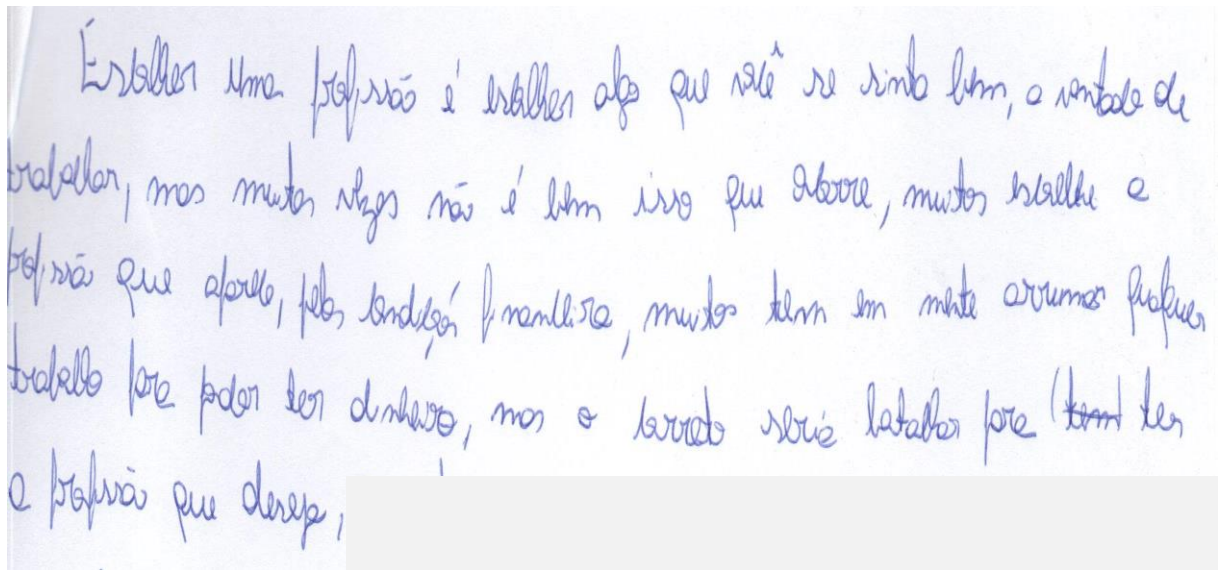 Escolher uma profissão é escolher algo que você se sinta bem, a vontade de
trabalhar, mas muitas vezes não é bem isso que ocorre, muitos escolhe a
profissão que aparece, pelas condição financeira, muitos tem em mente arrumar qualquer
trabalho pra poder ter dinheiro, mas o correto seria batalhar pra (tem) ter
a profissão que deseja,